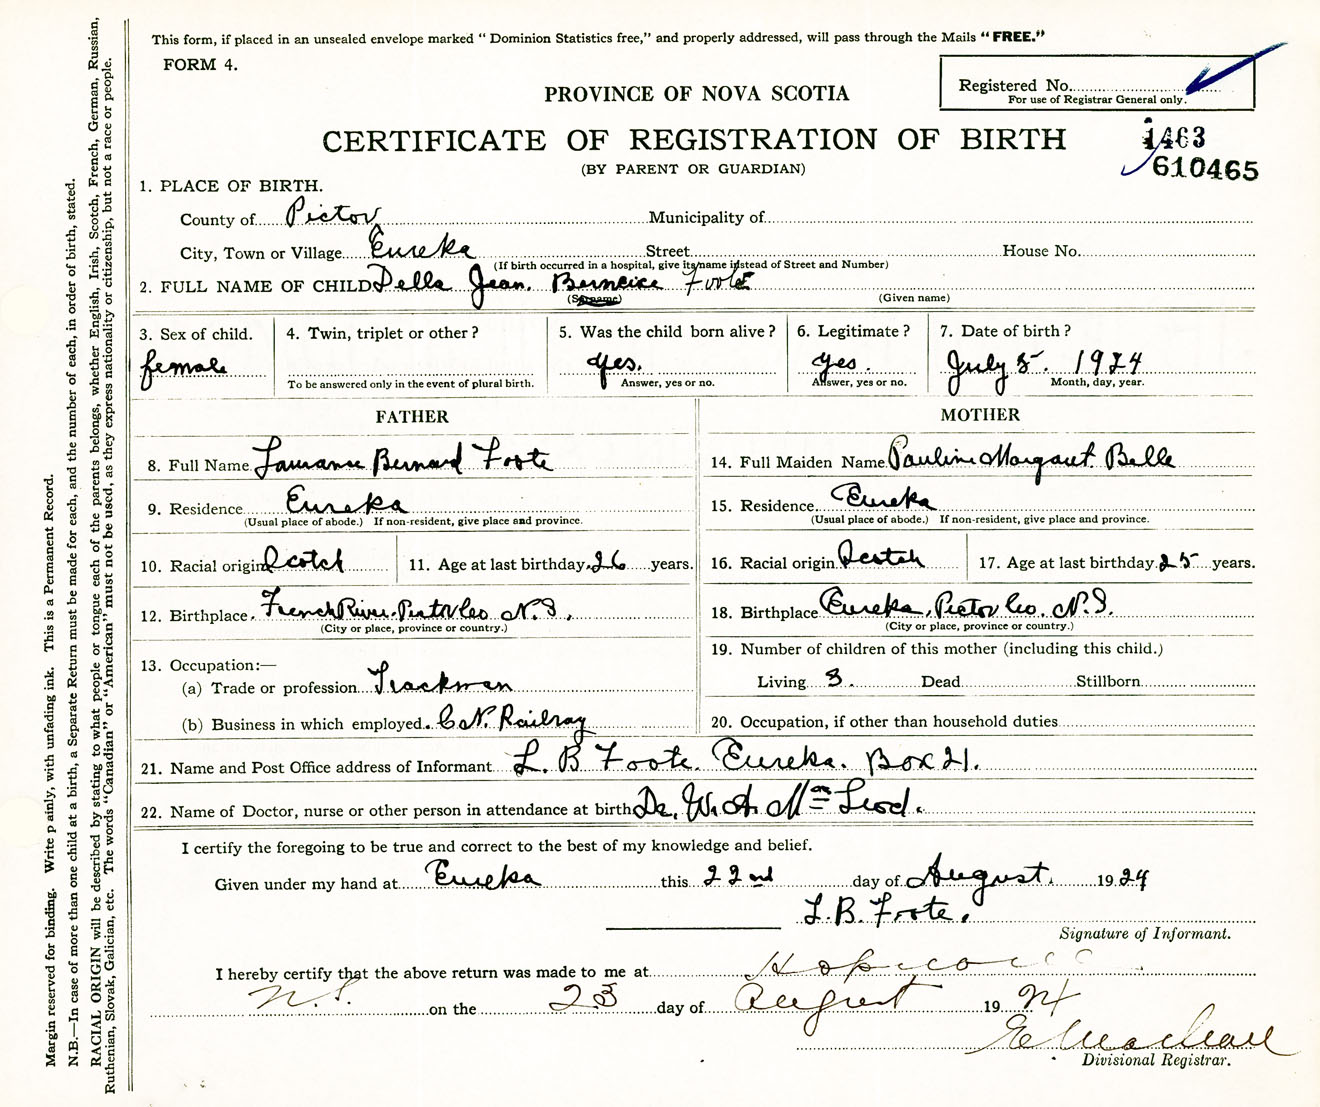 This form, if placed in an unsealed envelope marked " Dominion Statistics free," and properly addressed, will pass through the Mails " FREE."
FORM 4.
Registered No.
For use of Registrar General only.
PROVINCE OF NOVA SCOTIA
CERTIFICATE OF REGISTRATION OF BIRTH
1463
(BY PARENT OR GUARDIAN)
610465
1. PLACE OF BIRTH.
County of Pictou Municipality of
City, Town or Village Eureka Street House No.
(If birth occurred in a hospital, give its name instead of Street and Number)
2. FULL NAME OF CHILD Della Jean. Berneice Foote
(Surname) (Given name)
3. Sex of child. 4. Twin, triplet or other? 5. Was the child born alive? 6. Legitimate? 7. Date of birth?
female yes. yes. July 5 1924
To be answered only in the event of plural birth. Answer, yes or no. Answer, yes or no. Month, day, year.
FATHER MOTHER
8. Full Name Bernard Foote 14. Full Maiden Name Pauline Margaret Belle
9. Residence Eureka 15. Residence Eureka
(Usual place of abode.) If non-resident, give place and province. (Usual place of abode.) If non-resident, give place and province.
10. Racial origin Scotch 11. Age at last birthday 26 years. 16. Racial origin Scotch 17. Age at last birthday 25 years.
12. Birthplace. French River. Pictou Co N.S. 18. Birthplace Eureka, Pictou Co. N.S.
(City or place, province or country.) (City or place, province or country.)
13. Occupation:— 19. Number of children of this mother (including this child.)
(a) Trade or profession Trackman Living 3. Dead Stillborn
(b) Business in which employed. C.N. Railway 20. Occupation, if other than household duties
21. Name and Post Office address of Informant L. B Foote. Eureka. Box 21.
22. Name of Doctor, nurse or other person in attendance at birth Dr. W. A. Mc Leod.
I certify the foregoing to be true and correct to the best of my knowledge and belief.
Given under my hand at Eureka this 22nd day of August. 1924
L. B. Foote.
Signature of Informant.
I hereby certify that the above return was made to me at Hopewell
N.S. on the 23 day of August 1924
Divisional Registrar.
Margin reserved for binding. Write plainly, with unfading ink. This is a Permanent Record.
N.B.—In case of more than one child at a birth, a Separate Return must be made for each, and the number of each, in order of birth, stated.
RACIAL ORIGIN will be described by stating to what people or tongue each of the parents belongs, whether English, Irish, Scotch, French, German, Russian,
Ruthenian, Slovak, Galician, etc. The words "Canadian" or "American" must not be used, as they express nationality or citizenship, but not a race or people.